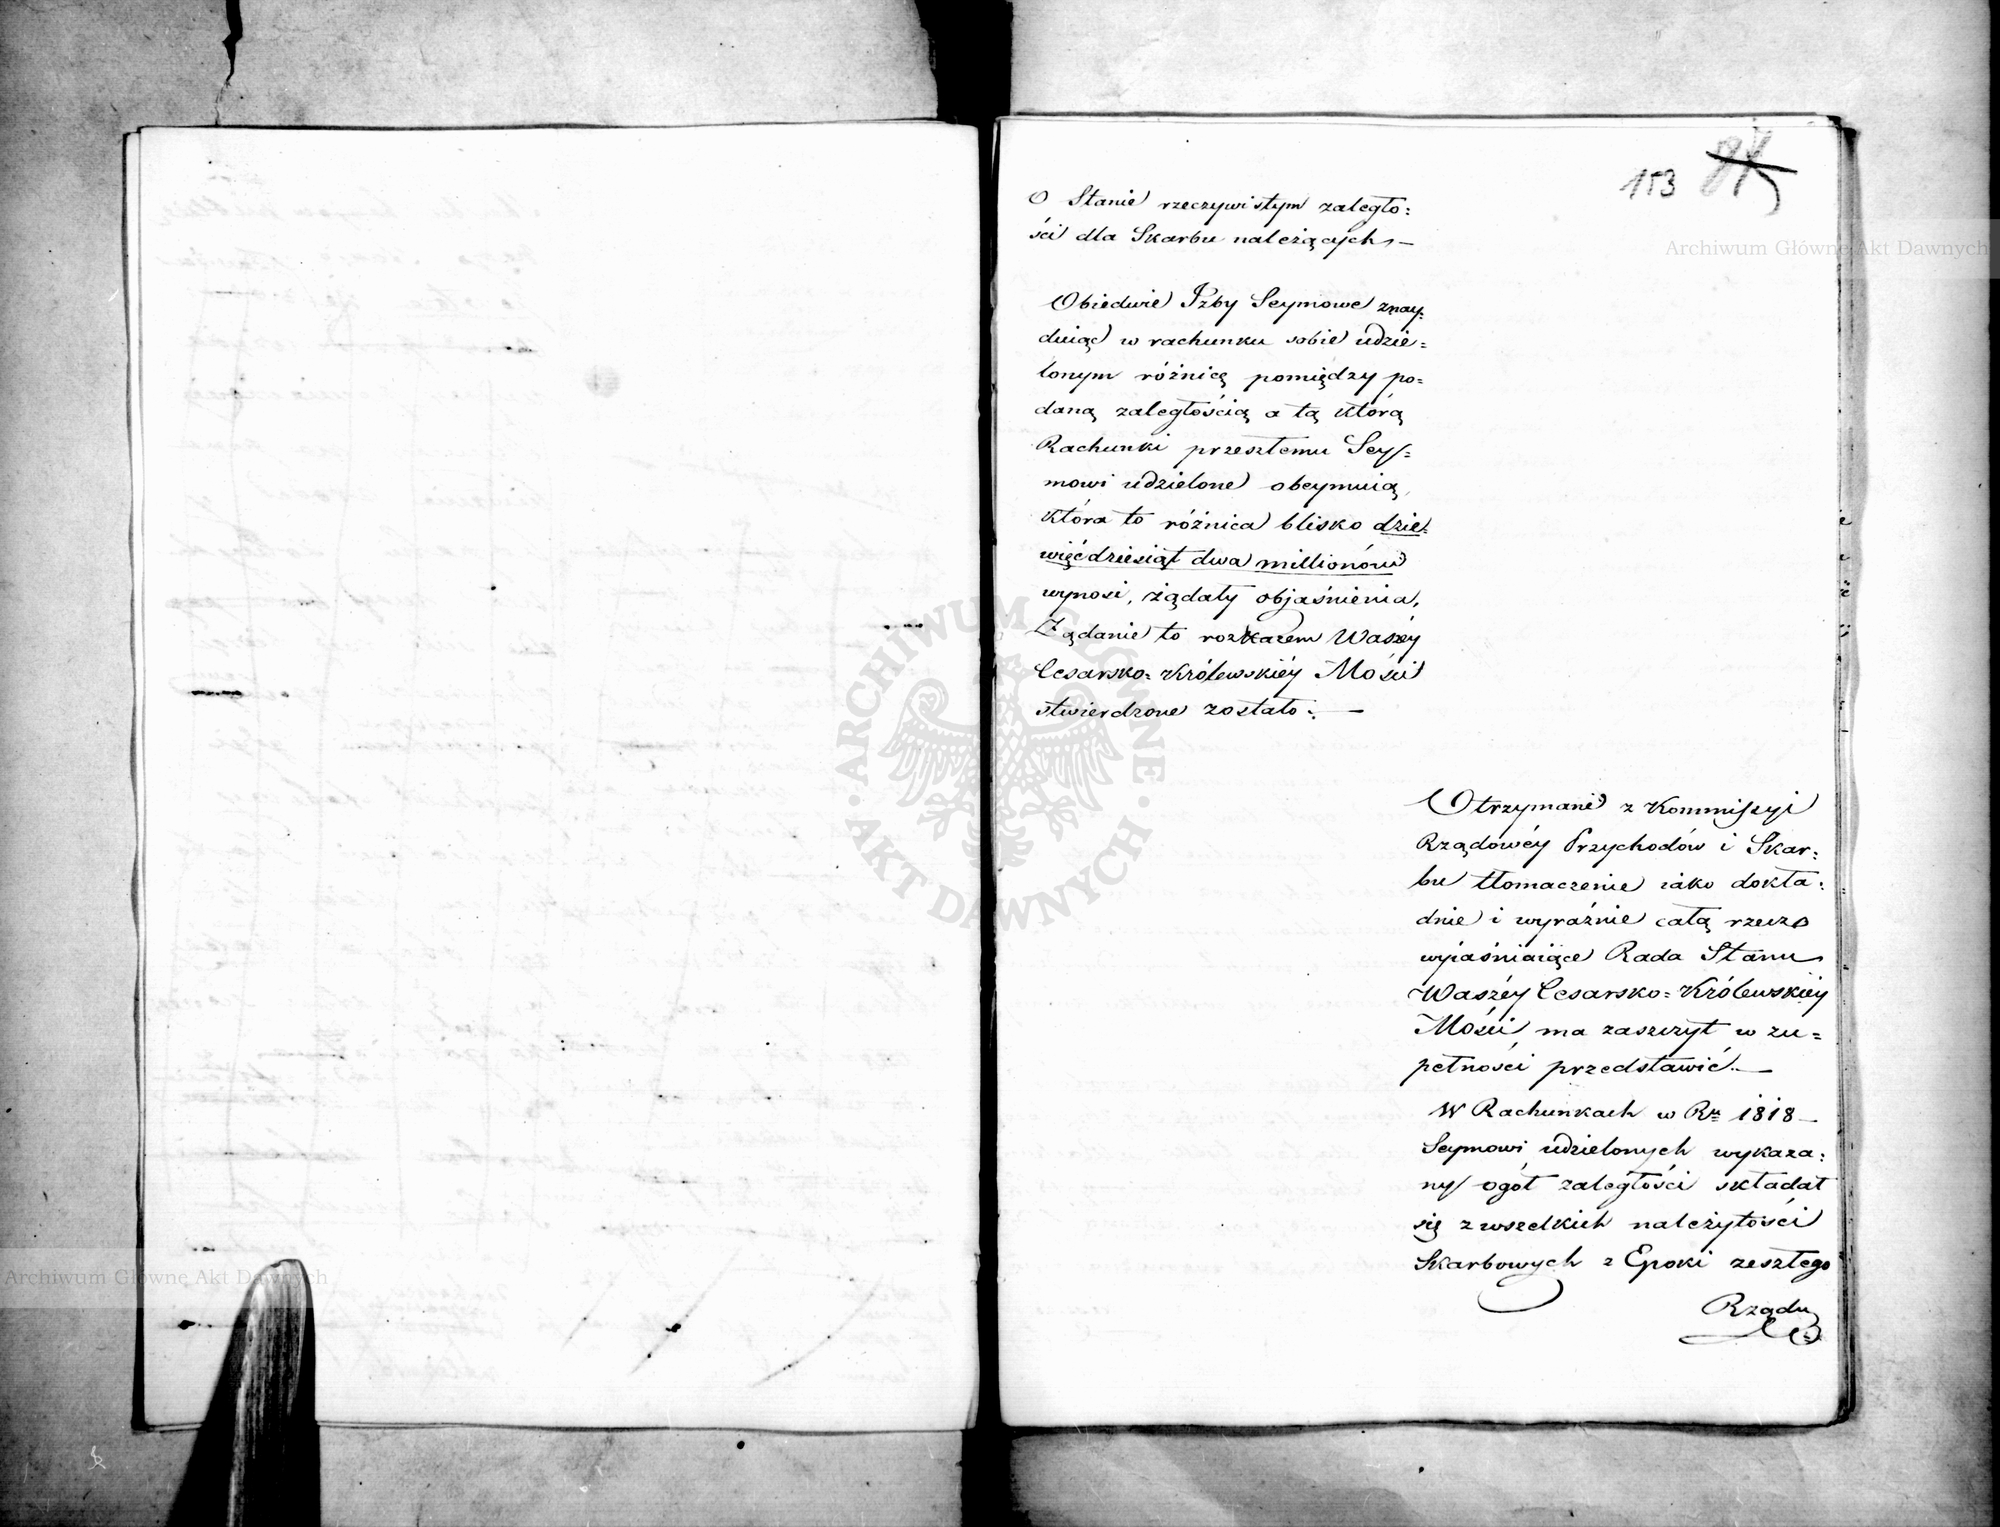 153 87
O Stanie rzeczywistym zaległo:
ści dla Skarbu należących,—
Obiedwie Izby Seymowe znay:
duiąc w rachunku sobie udzie=
lonym różnicę pomiędzy po=
daną zaległością a tą którą
Rachunki przeszłemu Sey=
mowi udzielone obeymuią,
która to różnica blisko dzie:
więćdziesiąt dwa millionów
wynosi, żądały objaśnienia,
Żądanie to rozkazem Waszéy
Cesarsko=Królewskiéy Mości
stwierdzone zostało:—
Otrzymane z Kommissyi
Rządowéy Przychodów i Skar:
bu tłomaczenie iako dokła:
dnie i wyraźnie całą rzecz
wyiaśniaiące Rada Stanu
Waszéy Cesarsko=Królewskiéy
Mości ma zaszczyt w zu=
pełności przedstawić.—
W Rachunkach w Rk 1818—
Seymowi udzielonych wykaza:
ny ogół zaległości składał
się z wszelkich należytości
Skarbowych z Epoki zeszłego
Rządu
Archiwum Główne Akt Dawnych
Archiwum Główne Akt Dawnych
ARCHIWUM GŁÓWNE
AKT DAWNYCH